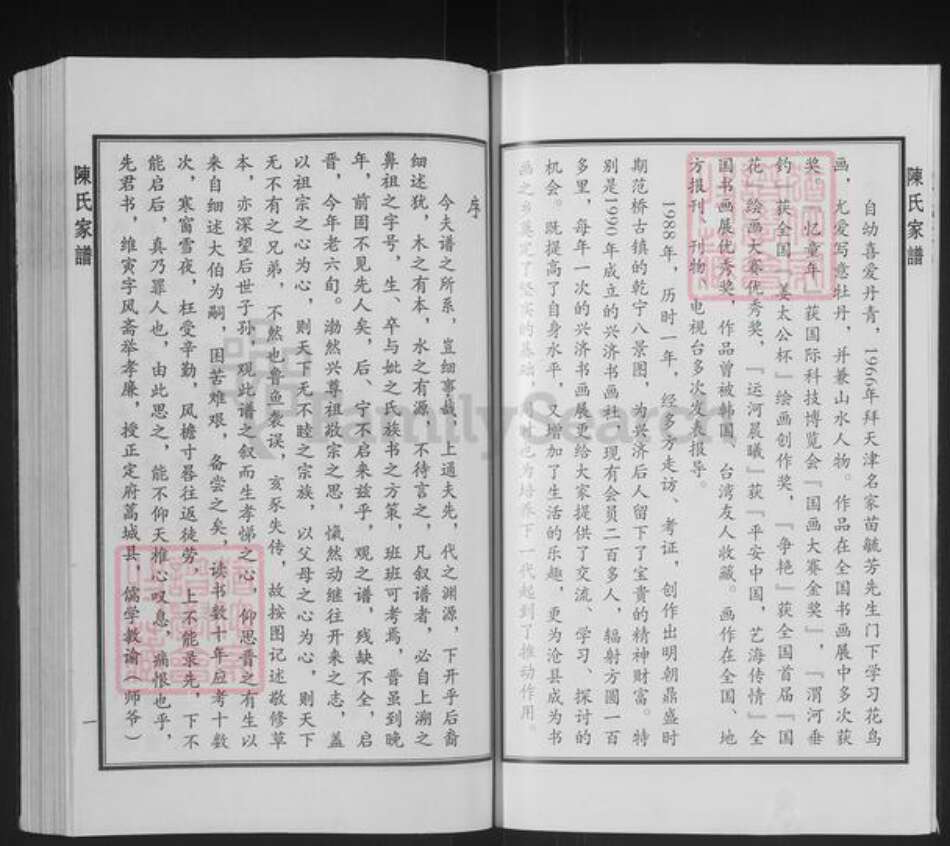 陳氏家譜
自幼喜爱丹青，1966年拜天津名家苗毓芳先生门下学习花鸟
画，尤爱写意牡丹，并兼山水人物。作品在全国书画展中多次获
奖，忆童年获国际科技博览会『国画大赛金奖』，『渭河垂
钓』获全国『姜太公杯』绘画创作奖，『争艳』获全国首届『国
花』绘画大赛优秀奖，『运河晨曦』获『平安中国，艺海传情』全
国书画展优秀奖，作品曾被韩国、台湾友人收藏。画作在全国、地
方报刊、刊物、电视台多次发表报导。
1988年，历时一年，经多方走访、考证，创作出明朝鼎盛时
期范桥古镇的乾宁八景图，为兴济后人留下了宝贵的精神财富。特
别是1990年成立的兴济书画社，现有会员二百多人，辐射方圆一百
多里，每年一次的兴济书画展更给大家提供了交流、学习、探讨的
机会。既提高了自身水平，又增加了生活的乐趣，更为沧县成为书
画之乡奠定了坚实的基础，同时也为培养下一代起到了推动作用。
序
今夫谱之所系，岂细事哉，上通夫先，代之渊源，下开乎后裔
细述犹，木之有本，水之有源，不待言之，凡叙谱者，必自上溯之
鼻祖之字号，生、卒与妣之氏族书之方策，班班可考焉，晋虽到晚
年，前固不见先人矣，后、宁不启来兹乎，观之谱，残缺不全，启
晋，今年老六旬。渤然兴尊祖敬宗之思，慨然动继往开来之志，盖
以祖宗之心为心，则天下无不睦之宗族，以父母之心为心，则天下
无不有之兄弟，不然也鲁鱼袭误，亥豕失传，故按图记述敬修草
本，亦深望后世子孙，观此谱之叙而生孝悌之心，仰思晋之有生以
来自细述大伯为嗣，困苦难艰，备尝之矣，读书数十年应考十数
次，寒窗雪夜，枉受辛勤，风檐寸晷往返徒劳，上不能录先，下不
能启后，真乃罪人也，由此思之，能不仰天椎心叹息，痛恨也乎，
先君书，维寅字风斋举孝廉，授正定府藁城县，儒学教谕（师爷）
陳氏家譜
一
FamilySearch